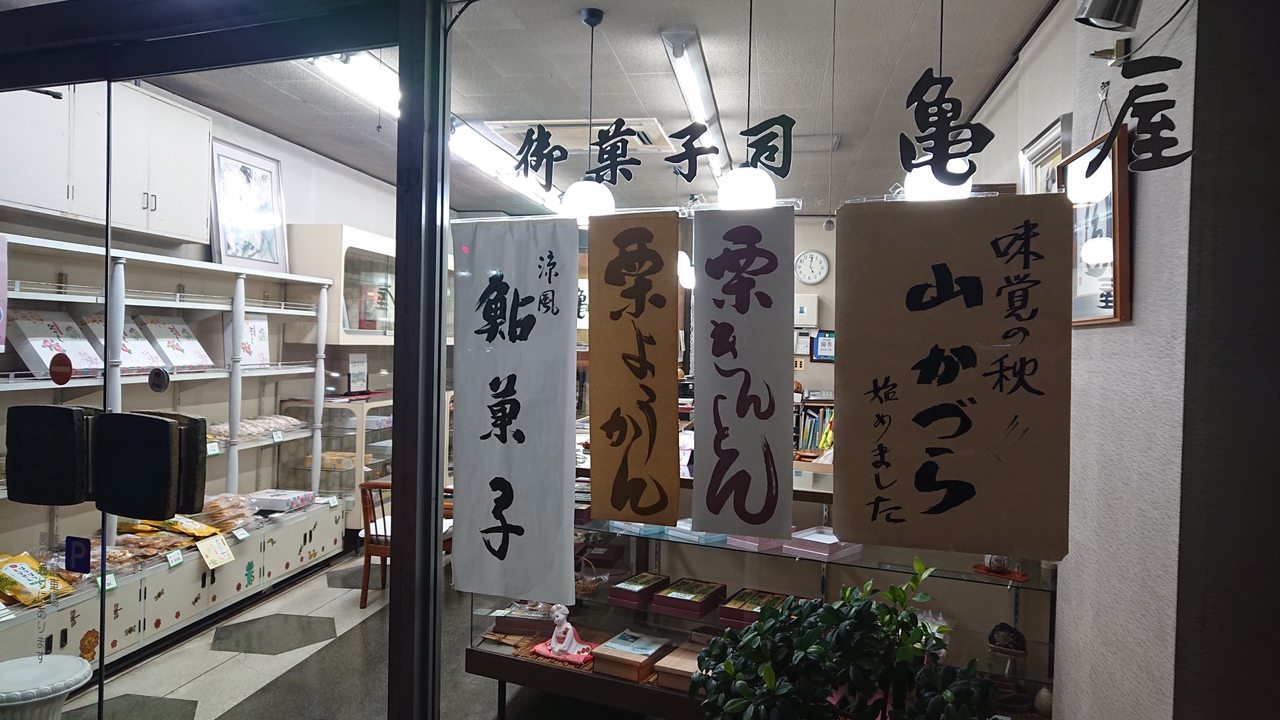 御菓子司 亀屋
涼風
鮎菓子
栗ようかん
栗きんとん
味覚の秋
山かづら
始めました
P